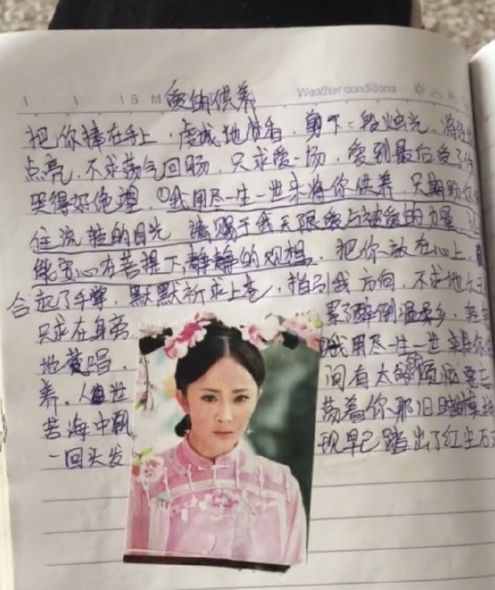 S M Weather conditions
爱的供养
把你捧在手上，虔诚地焚香，剪下一段烛光，将
点亮，不求荡气回肠，只求爱一场，爱到最后受了
哭得好绝望，我用尽一生一世来将你供养，只期盼你
住流转的目光，请赐予我无限爱与被爱的力量，
能安心在菩提下静静的观想，把你放在心上，
合起了手掌，默默祈求上苍，指引我方向，不求地久
只求在身旁 累了醉倒温柔乡，轻
地慢唱， 我用尽一生一世来将你
养，人世 间有太的烦恼要忘
苦海中飘 荡着你那旧时模样
一回头发 现早已踏出了红尘万